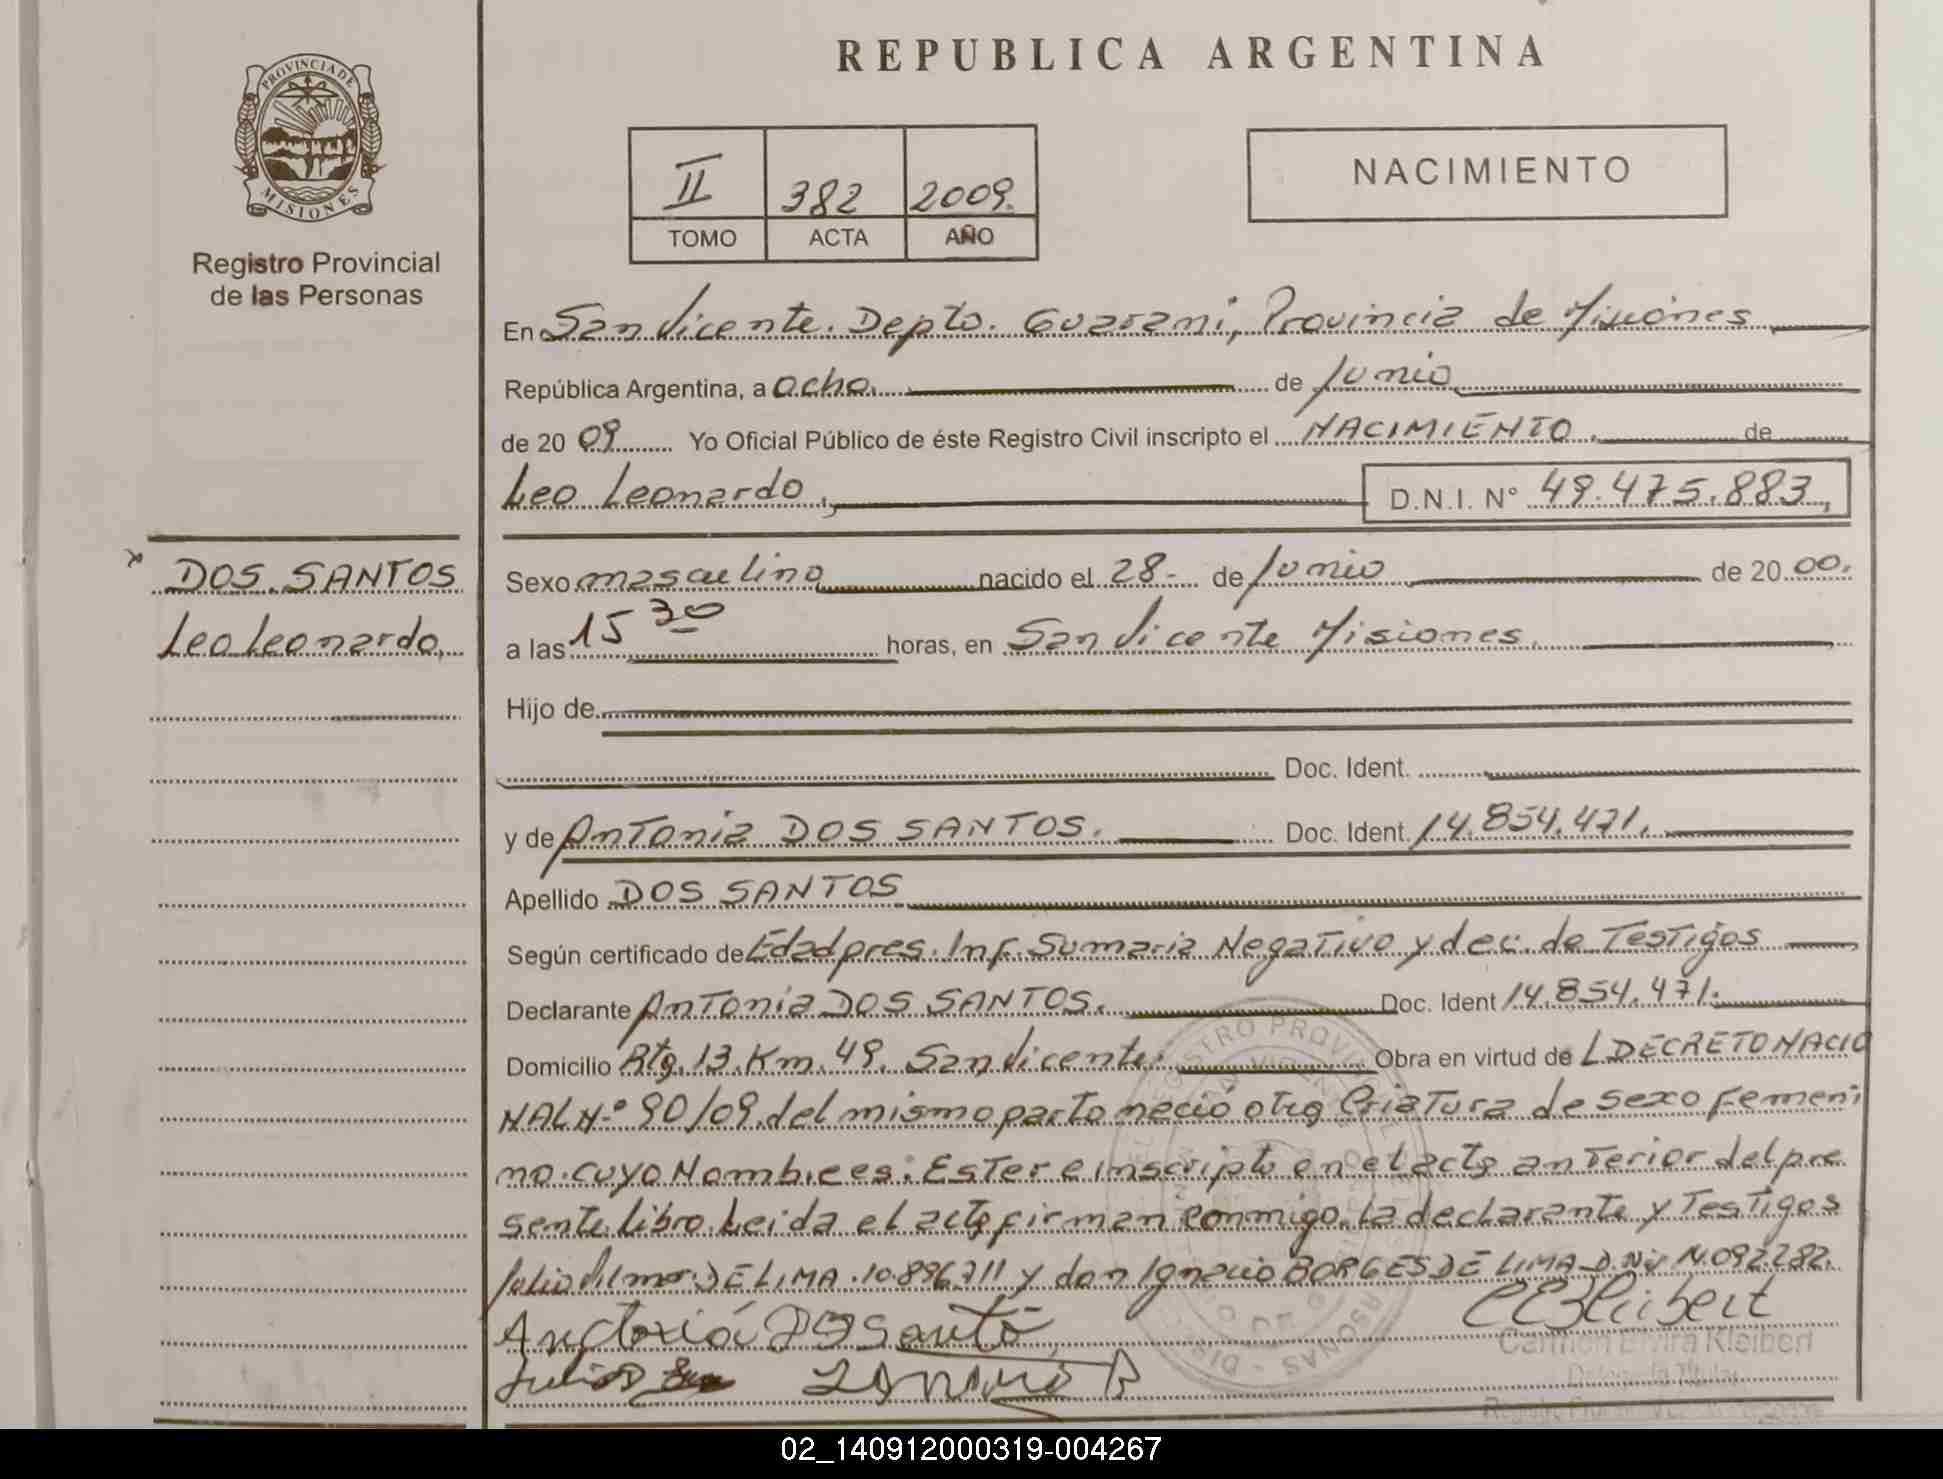 PROVINCIA DE
MISIONES
Registro Provincial
de las Personas
DOS SANTOS
Leo Leonardo,
REPUBLICA ARGENTINA
II 382 2009.
TOMO ACTA AÑO
NACIMIENTO
En San Vicente. Depto. Guarani, Provincia de Misiones
República Argentina, a ocho. de Junio
de 20 09 Yo Oficial Público de éste Registro Civil inscripto el NACIMIENTO. de
Leo Leonardo, D.N.I. N° 49.475.883,
Sexo masculino nacido el 28- de Junio de 20 00.
a las 15 30 horas, en San Vicente Misiones.
Hijo de
Doc. Ident.
y de Antonia DOS SANTOS. Doc. Ident. 14.854.471.
Apellido DOS SANTOS
Según certificado de Edad pres. Inf. Sumaria Negativo y dec. de Testigos
Declarante Antonia DOS SANTOS. Doc. Ident 14.854.471.
Domicilio Rta. 13. Km. 49. San Vicente. Obra en virtud de L DECRETO NACIO
NAL N° 90/09. del mismo parto nació otra Criatura de sexo femeni
no. cuyo Nombre es: Ester e inscripto en el acta anterior del pre
sente libro. Leida el acta firman conmigo. la declarante y Testigos
Julio Vilmar DE LIMA. 10.896.711 y don Ignacio BORGES DE LIMA D.Ni N.092282.
Carmen Elvira Kleibert
Delegada Titular
02_140912000319-004267